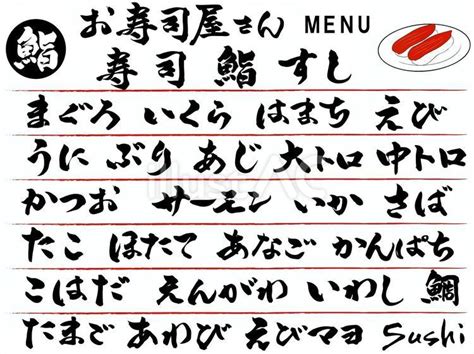 鮨 お寿司屋さん MENU
寿司 鮨 すし
まぐろ いくら はまち えび
うに ぶり あじ 大トロ 中トロ
かつお サーモン いか さば
たこ ほたて あなご かんぱち
こはだ えんがわ いわし 鯛
たまご あわび えびマヨ Sushi